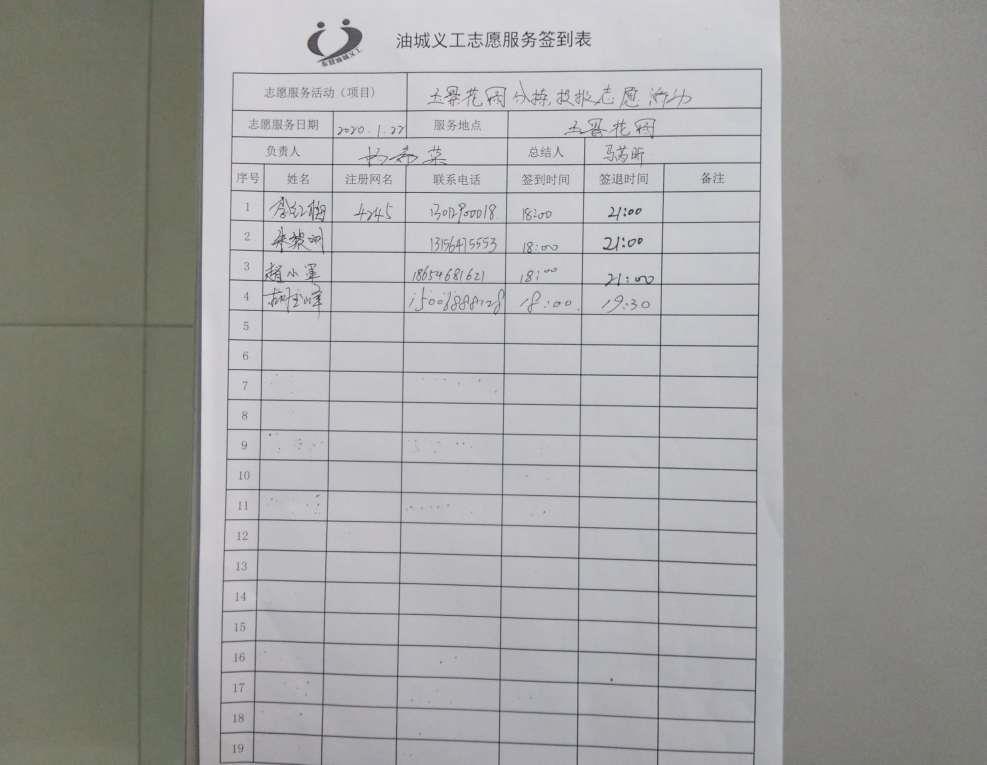 东营油城义工
油城义工志愿服务签到表
志愿服务活动（项目） 五界花园分拣投报志愿活动
志愿服务日期 2020.1.27 服务地点 五界花园
负责人 杨希英 总结人 马芮昕
序号 姓名 注册网名 联系电话 签到时间 签退时间 备注
1 李红梅 4245 13012900018 18:00 21:00
2 13156415553 18:00 21:00
3 赵小军 18654681621 18:00 21:00
4 胡玉峰 18:00. 19:30
5
6
7
8
9
10
11
12
13
14
15
16
17
18
19